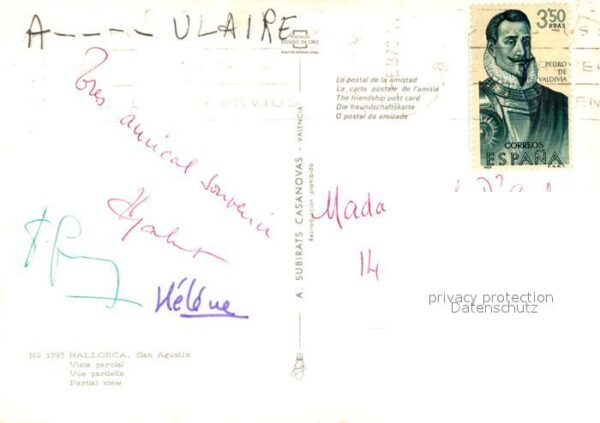 A---- ULAIRE
POSTALES
ESCUDO DE ORO
3'50
PTAS
PEDRO
DE
VALDIVIA
CORREOS
ESPAÑA
La postal de la amistad
La carte postale de l'amitié
The friendship post card
Die freundschaftskarte
O postal da amizade
amical souvenir
Hélène
A. SUBIRATS CASANOVAS - VALENCIA
Reproducción prohibida
Mada
14
privacy protection
Datenschutz
No 1797 MALLORCA. San Agustín
Vista parcial
Vue partielle
Partial view